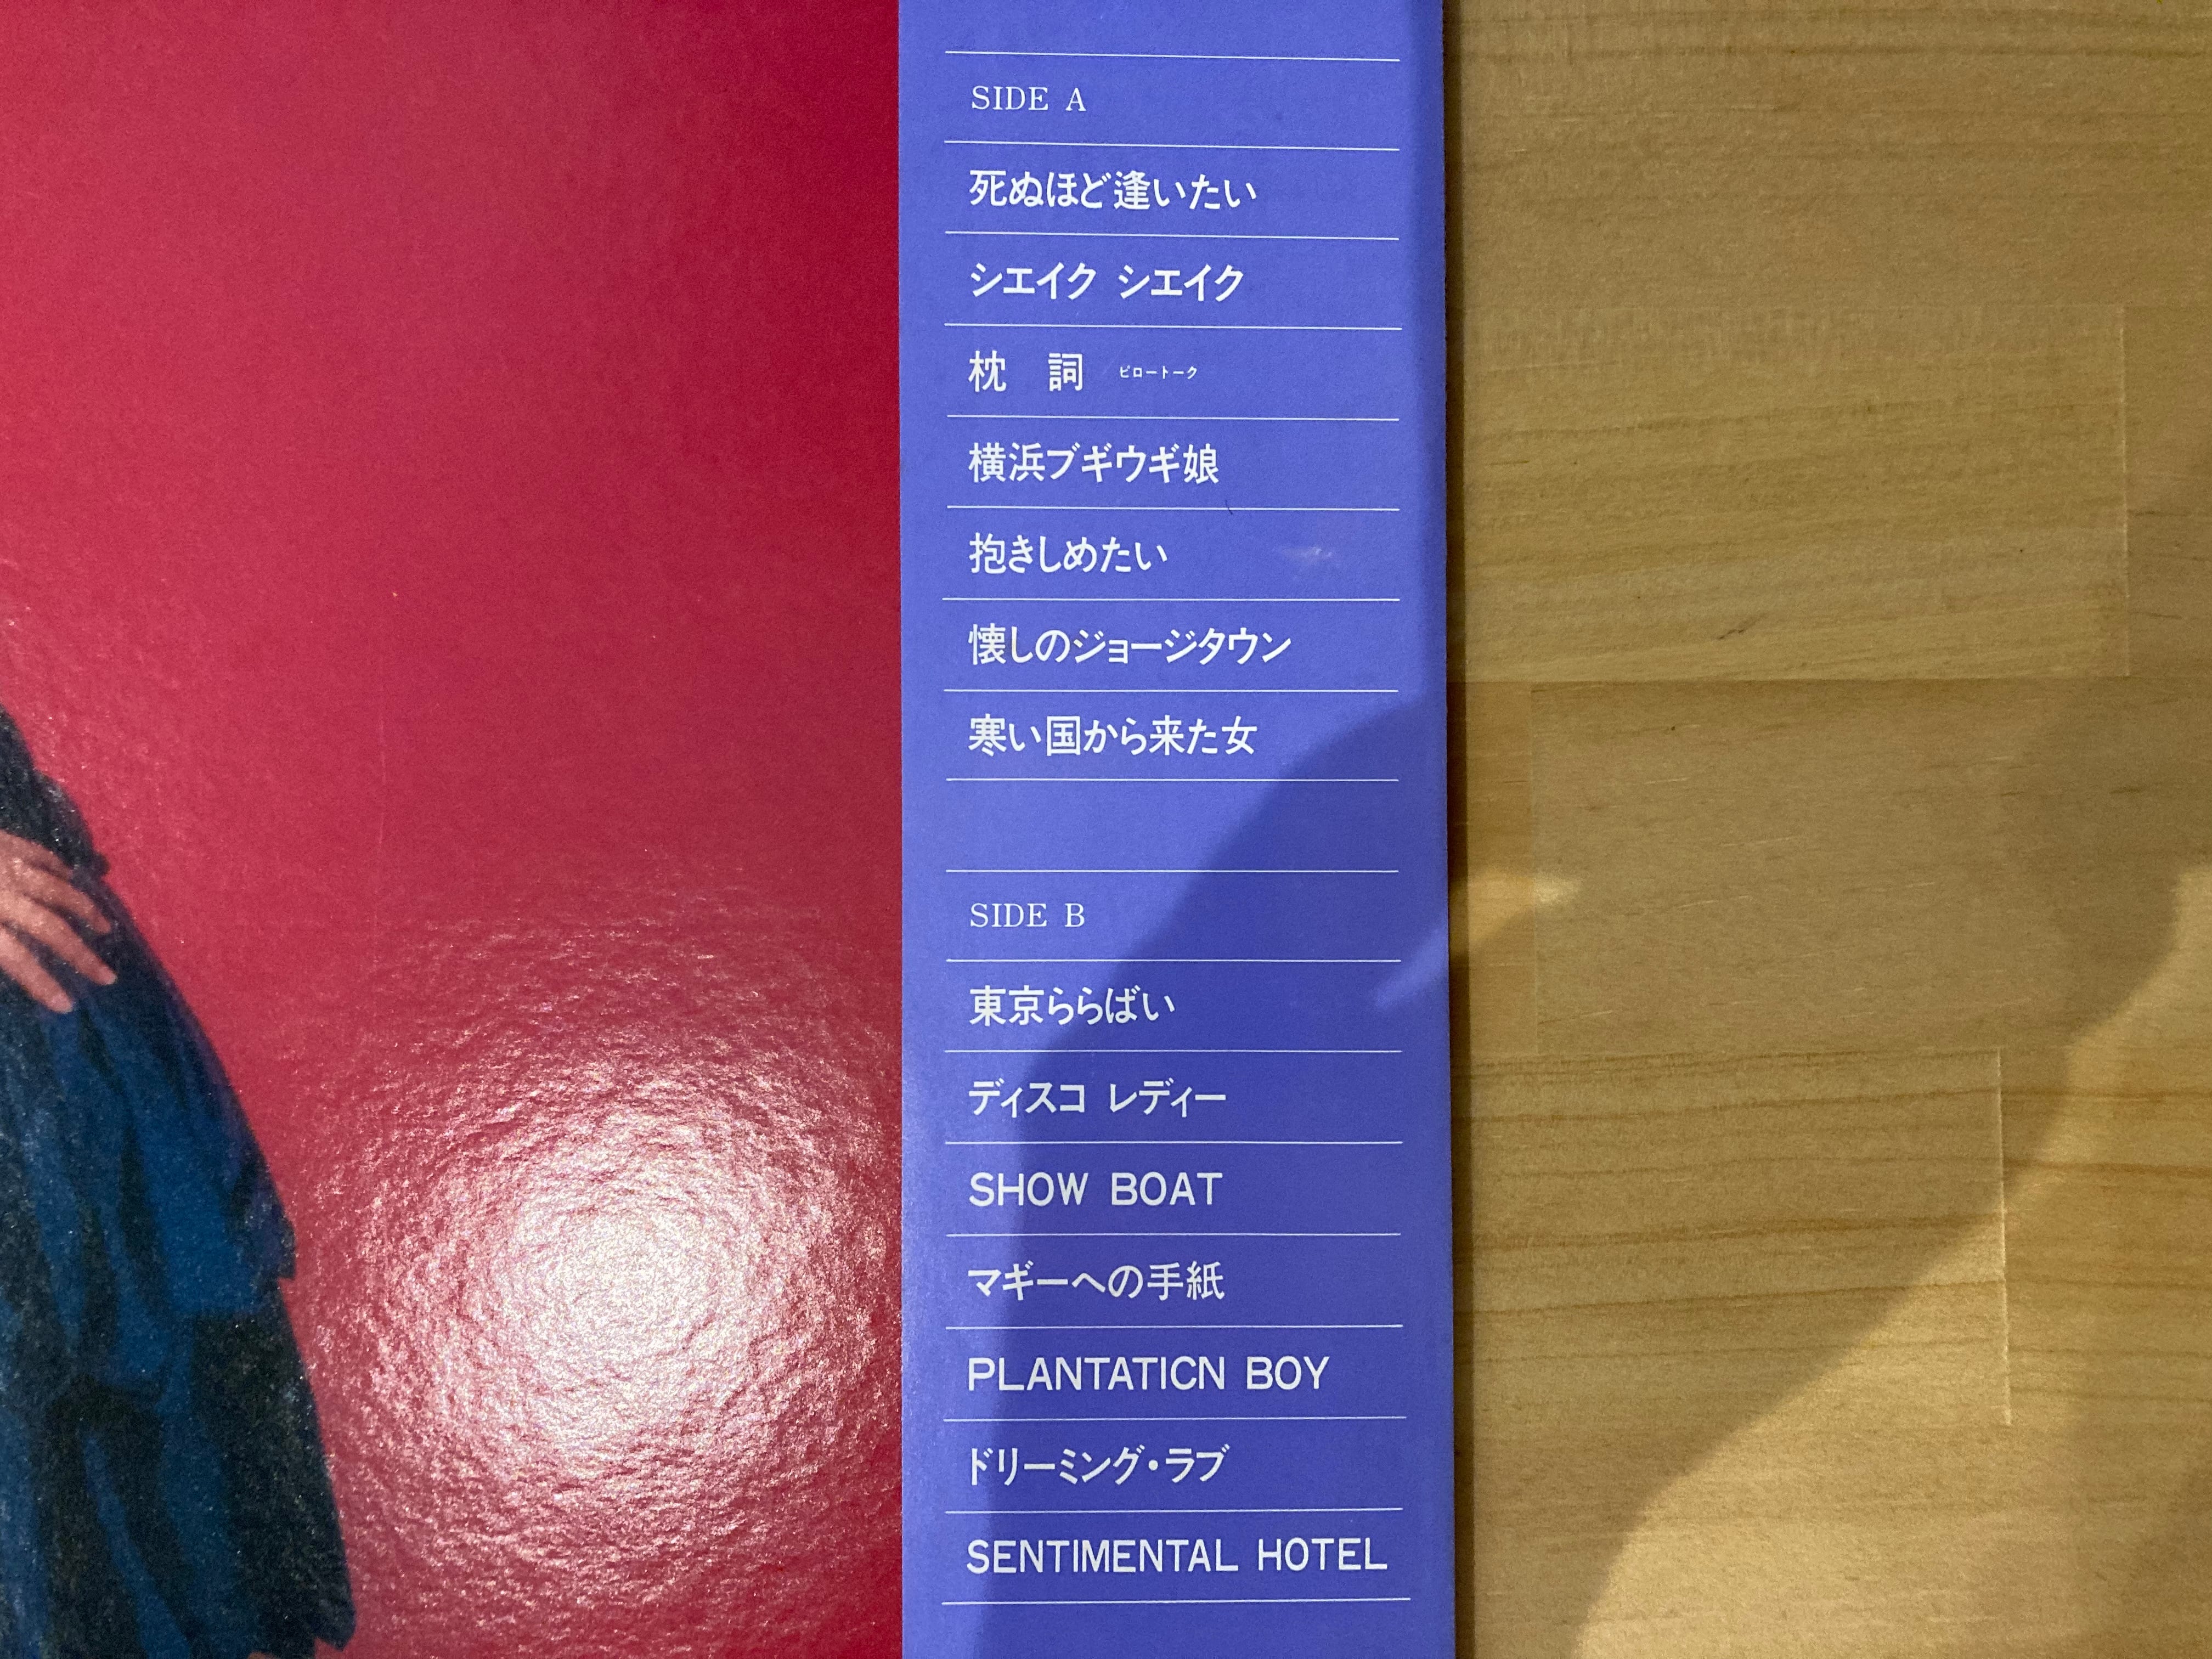 SIDE A
死ぬほど逢いたい
シエイク シエイク
枕 詞 ピロートーク
横浜ブギウギ娘
抱きしめたい
懐しのジョージタウン
寒い国から来た女
SIDE B
東京ららばい
ディスコ レディー
SHOW BOAT
マギーへの手紙
PLANTATICN BOY
ドリーミング・ラブ
SENTIMENTAL HOTEL